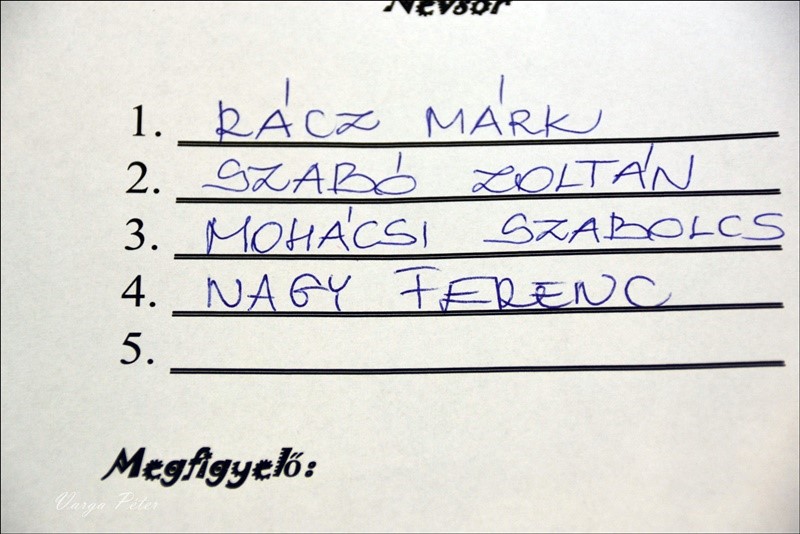 Névsor
1. RÁCZ MÁRK
2. SZABÓ ZOLTÁN
3. MOHÁCSI SZABOLCS
4. NAGY FERENC
5.
Megfigyelő:
Varga Péter